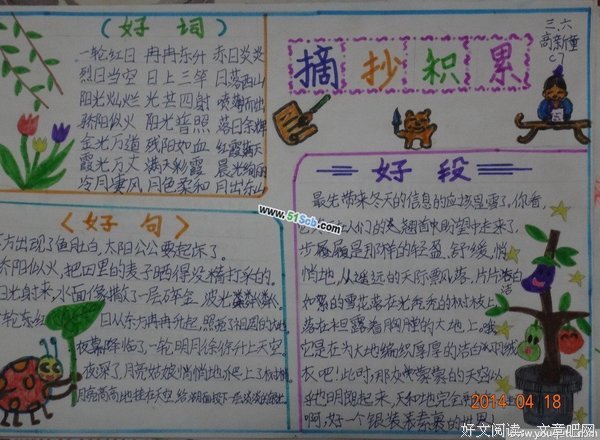 （好词）
一轮红日 冉冉东升 赤日炎炎
烈日当空 日上三竿 日落西山
阳光灿烂 光芒四射 喷薄而出
骄阳似火 阳光普照 落日余辉
金光万道 残阳如血 红霞满天
霞光万丈 满天彩霞 晨光绚丽
冷月凄风 月色柔和 月出东山
摘抄积累
三.六
高新童
C7
www.51Scb.com
好段
最先带来冬天的信息的应该是雪了，你看，
人们的翘首盼望中走来了。
步履是那样的轻盈、舒缓，悄
悄地，从遥远的天际飘落，片片洁白
如絮的雪花落在光秃秃的树枝上
落在袒露着胸膛的大地上。哦
它是在为大地编织厚厚的洁白的绒
衣吧！此时，那灰蒙蒙的天空
地明朗起来，天和地完全
啊，好一个银装素裹的世界！
〈好句〉
方出现了鱼肚白，太阳公公要起床了。
骄阳似火，把四里的麦子晒得没精打采的。
日光射来，水面像撒了一层碎金，波光粼粼
一轮东红 日从东方冉冉升起，照亮了祖国的大地
夜幕降临了，一轮明月徐徐升上天空
夜深了，月亮姑娘悄悄地爬上了树梢
月亮高高地挂在天空，给湖面披
2014-04 18
好文阅读 www.wyxu8.com 文章吧网